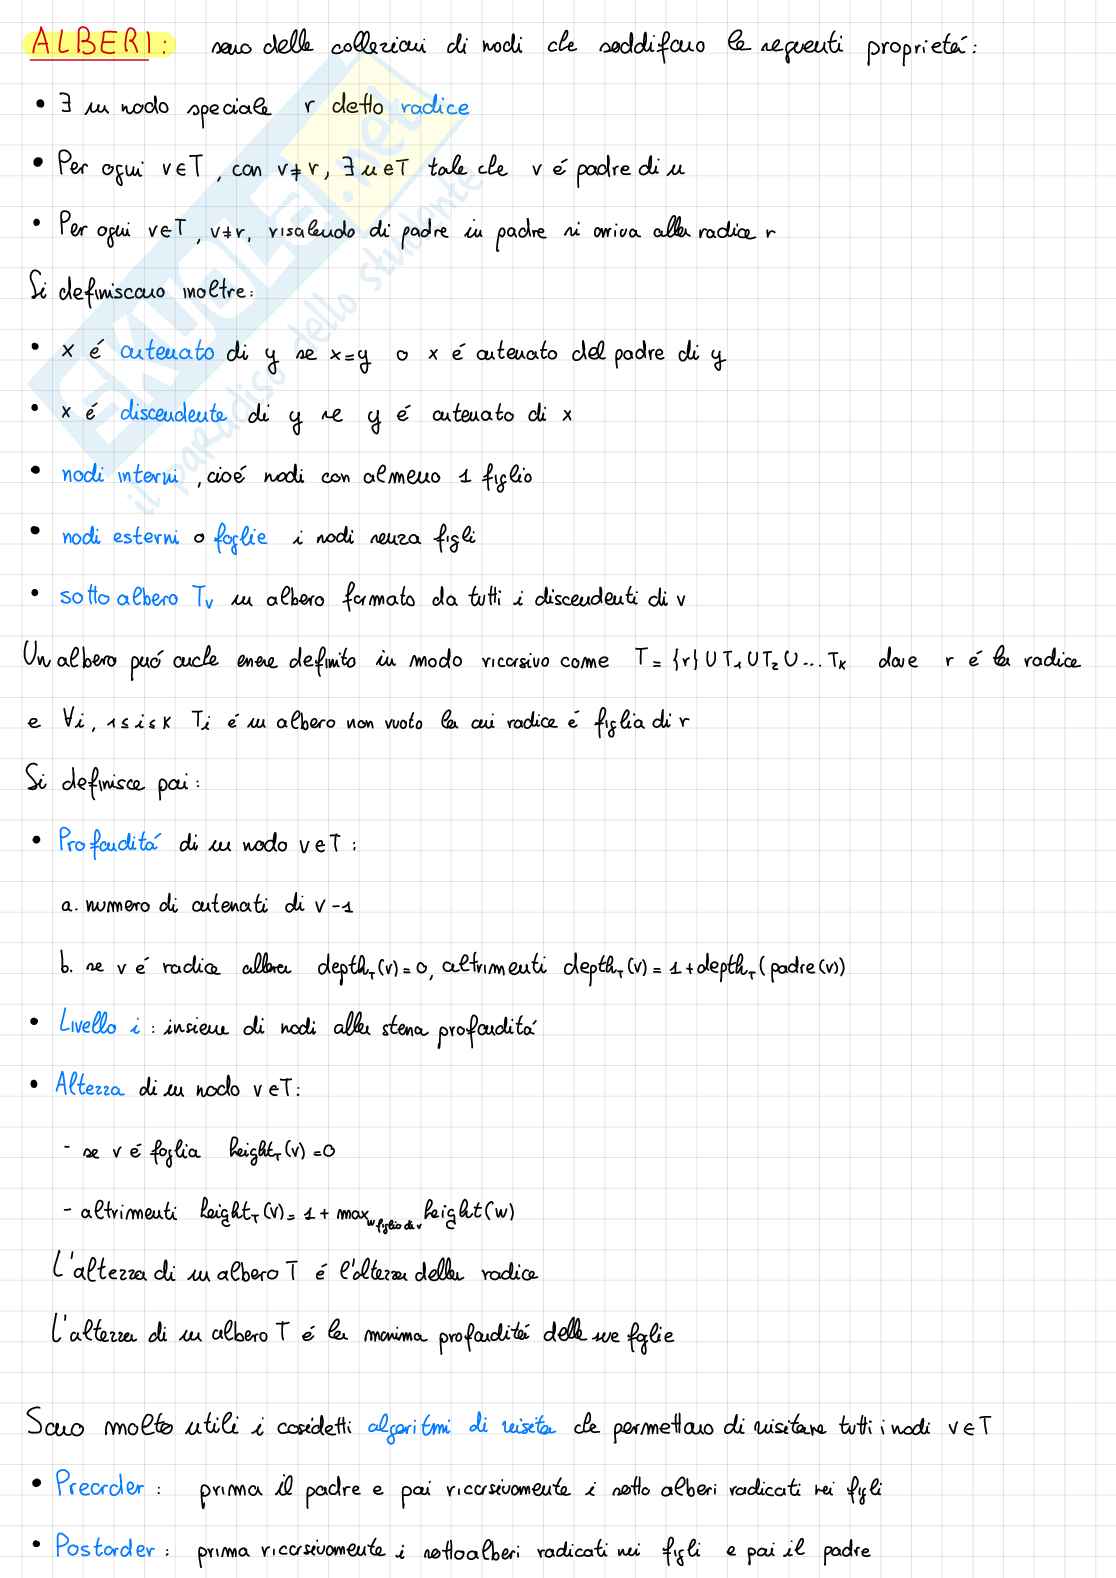 ALBERI: sono delle collezioni di nodi che soddifano le seguenti proprietá:
• ∃ un nodo speciale r detto radice
• Per ogni v∈T, con v≠r, ∃u∈T tale che v é padre di u
• Per ogni v∈T, v≠r, risalendo di padre in padre si arriva alla radice r
Si definiscono inoltre:
• x é antenato di y se x=y o x é antenato del padre di y
• x é discendente di y se y é antenato di x
• nodi interni, cioé nodi con almeno 1 figlio
• nodi esterni o foglie i nodi senza figli
• sotto albero Tv un albero formato da tutti i discendenti di v
Un albero puó anche essere definito in modo ricorsivo come T={r}∪T1∪T2∪...Tk dove r é la radice
e ∀i, 1≤i≤k Ti é un albero non vuoto la cui radice é figlia di r
Si definisce poi:
• Profonditá di un nodo v∈T:
a. numero di antenati di v-1
b. se v é radice allora depthT(v)=0, altrimenti depthT(v)=1+depthT(padre(v))
• Livello i: insieme di nodi alla stessa profonditá
• Altezza di un nodo v∈T:
- se v é foglia heightT(v)=0
- altrimenti heightT(v)=1+max w figlio di v height(w)
L'altezza di un albero T é l'altezza della radice
L'altezza di un albero T é la massima profonditá delle sue foglie
Sono molto utili i cosidetti algoritmi di visita che permettono di visitare tutti i nodi v∈T
• Preorder: prima il padre e poi ricorsivamente i sotto alberi radicati nei figli
• Postorder: prima ricorsivamente i sottoalberi radicati nei figli e poi il padre
SKUOLA.net
il paradiso dello studente